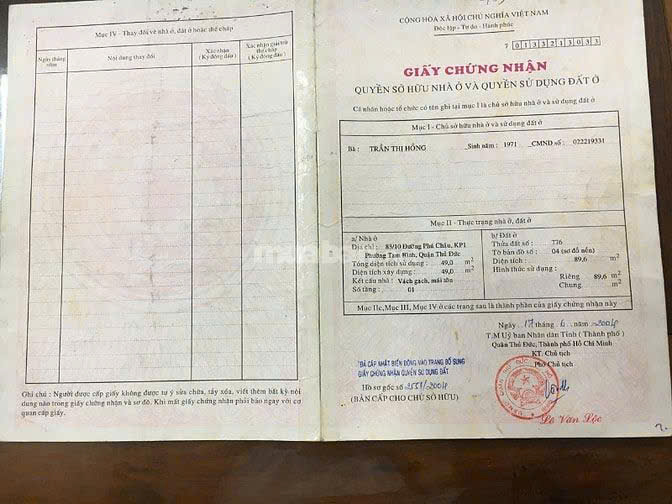 Mục IV - Thay đổi về nhà ở, đất ở hoặc thế chấp
Ngày tháng năm
Nội dung thay đổi
Xác nhận (Ký đóng dấu)
Xác nhận giải trừ thế chấp (Ký đóng dấu)
Ghi chú : Người được cấp giấy không được tự ý sửa chữa, tẩy xóa, viết thêm bất kỳ nội
dung nào trong giấy chứng nhận và sơ đồ. Khi mất giấy chứng nhận phải báo ngay với cơ
quan cấp giấy.
CỘNG HÒA XÃ HỘI CHỦ NGHĨA VIỆT NAM
Độc lập - Tự do - Hạnh phúc
7 0133213033
GIẤY CHỨNG NHẬN
QUYỀN SỞ HỮU NHÀ Ở VÀ QUYỀN SỬ DỤNG ĐẤT Ở
Cá nhân hoặc tổ chức có tên ghi tại mục I là chủ sở hữu nhà ở và sử dụng đất ở
Mục I - Chủ sở hữu nhà ở và sử dụng đất ở
Bà : TRẦN THỊ HỒNG _Sinh năm : 1971 _CMND số : 022219331
Mục II - Thực trạng nhà ở, đất ở
a/ Nhà ở
Địa chỉ : 85/10 Đường Phú Châu, KP1
Phường Tam Bình, Quận Thủ Đức
Tổng diện tích sử dụng : 49,0 m2
Diện tích xây dựng : 49,0 m2
Kết cấu nhà : Vách gạch, mái tôn
Số tầng : 01
b/ Đất ở
Thửa đất số : 776
Tờ bản đồ số : 04 (sơ đồ nền)
Diện tích : 89,6 m2
Hình thức sử dụng :
Riêng 89,6 m2
Chung m2
Mục IIc, Mục III, Mục IV ở các trang sau là thành phần của giấy chứng nhận này
Ngày 17 tháng 6 năm 2004
T.M Uỷ ban Nhân dân Tỉnh ( Thành phố )
Quận Thủ Đức, Thành phố Hồ Chí Minh
KT. Chủ tịch
Phó Chủ tịch
ĐÃ CẤP NHẬT BIẾN ĐỘNG VÀO TRANG BỔ SUNG
GIẤY CHỨNG NHẬN QUYỀN SỬ DỤNG ĐẤT
Hồ sơ gốc số 2551/2004
(BẢN CẤP CHO CHỦ SỞ HỮU)
Lê Văn Lộc
2.